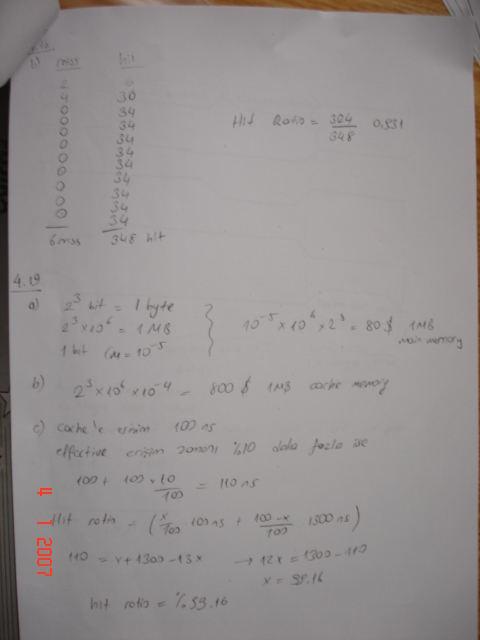 b) miss hit
2 0
4 30
0 34
0 34
0 34
0 34
0 34
0 34
0 34
0 34
0 34
6 miss 348 hit
Hit Ratio = 324/348 0,931
4.19
a) 2^3 bit = 1 byte
2^3 x 10^6 = 1 MB
1 bit Cm = 10^-5
10^-5 x 10^6 x 2^3 = 80 $ 1MB
main memory
b) 2^3 x 10^6 x 10^-4 = 800 $ 1MB cache memory
c) cache'e erişim 100 ns
effective erişim zamanı %10 daha fazla ise
100 + 100 x 10/100 = 110 ns
Hit ratio = (x/100 100 ns + 100-x/100 1300 ns)
110 = x + 1300 - 13x → 12x = 1300 - 110
x = 99.16
hit ratio = %99.16
4 1 2007